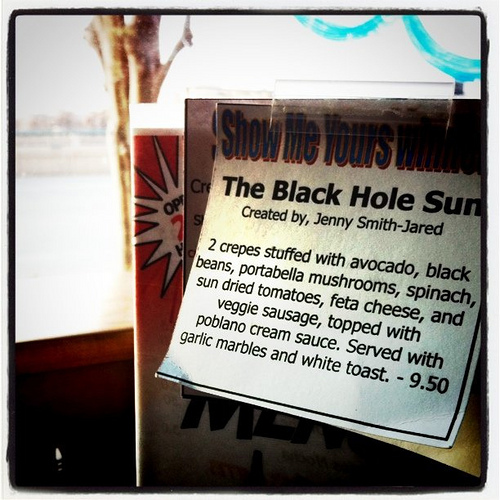 Show Me Yours Winne
The Black Hole Sun
Created by, Jenny Smith-Jared
2 crepes stuffed with avocado, black
beans, portabella mushrooms, spinach,
sun dried tomatoes, feta cheese, and
veggie sausage, topped with
poblano cream sauce. Served with
garlic marbles and white toast. - 9.50
MEN